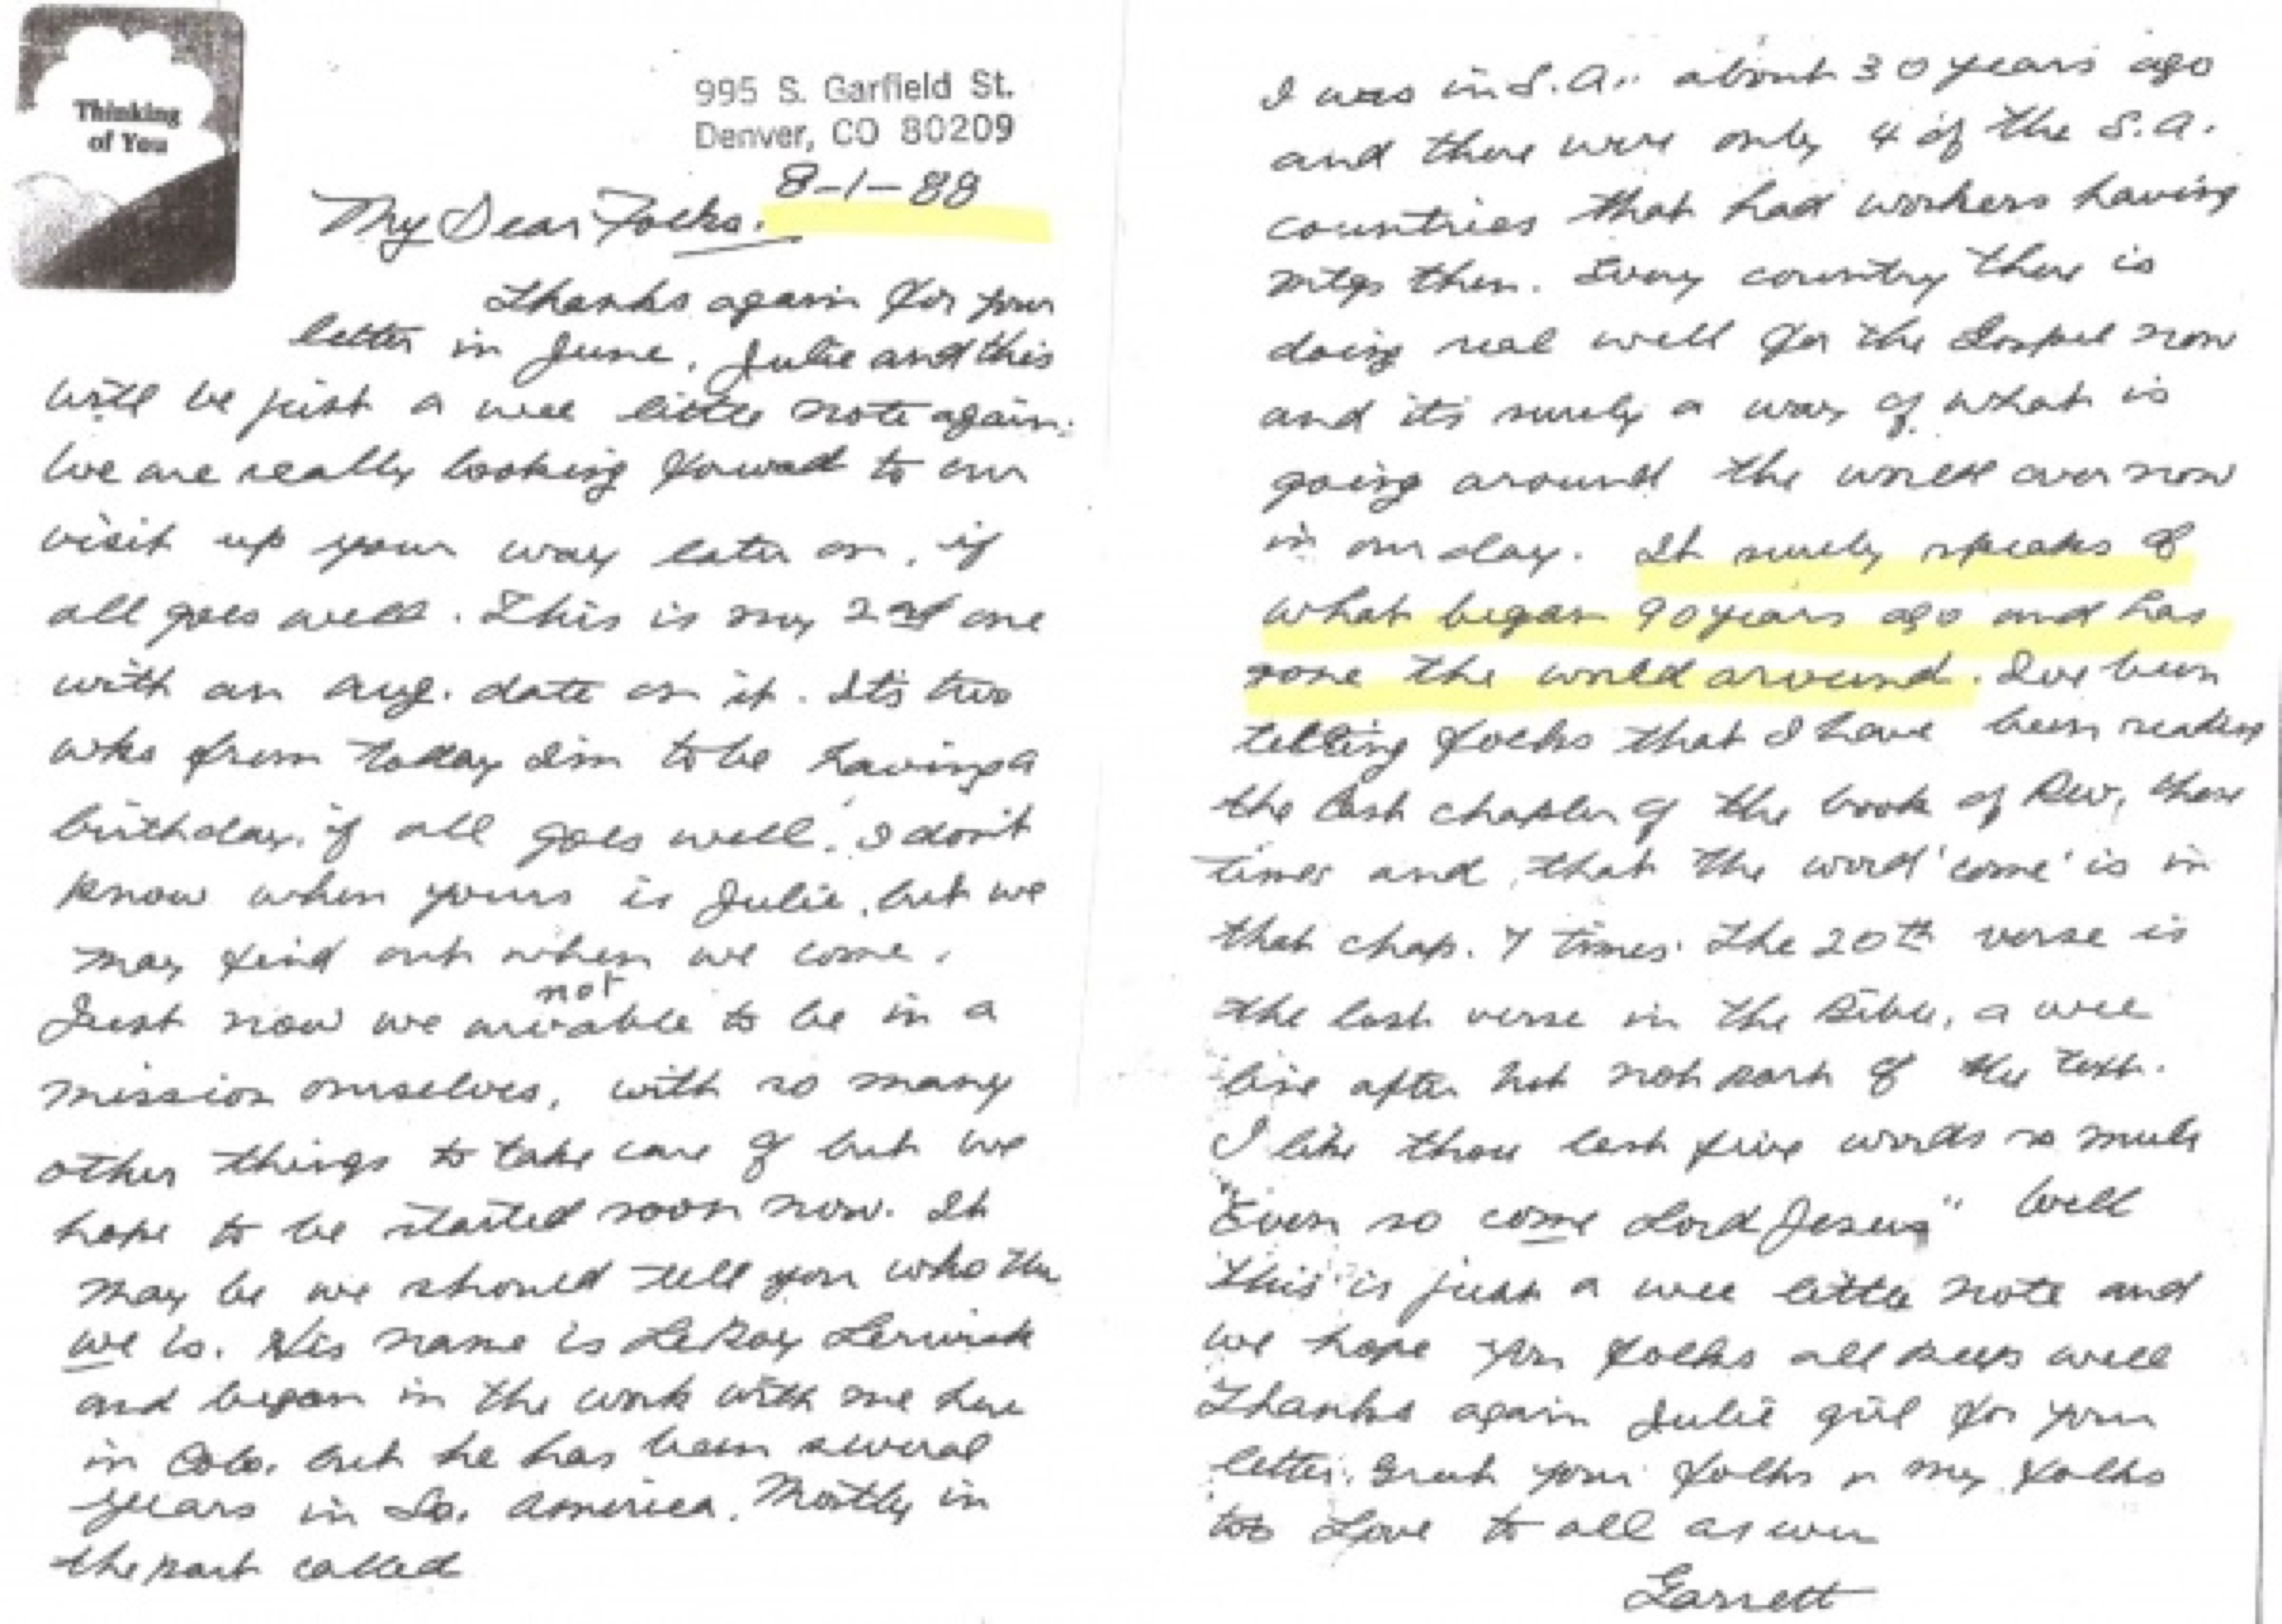 Thinking
of You
995 S. Garfield St.
Denver, CO 80209
8-1-88
My Dear Folks.
Thanks again for your
letter in June, Julie and this
will be just a wee little note again.
We are really looking foward to our
visit up your way later on, if
all goes well. This is my 2nd one
with an Aug. date on it. It's two
wks from today I'm to be having a
birthday, if all goes well. I don't
know when yours is Julie, but we
may find out when we come.
not
Just now we are able to be in a
mission ourselves, with so many
other things to take care of but we
hope to be started soon now. It
may be we should tell you who the
we is. His name is LeRoy Lerwick
and began in the work with me here
in Colo. but he has been several
years in So. America. Mostly in
the part called
I was in S.A. about 30 years ago
and there were only 4 of the S.A.
countries that had workers having
mtgs then. Every country there is
doing real well for the Gospel now
and its surely a way of what is
going around the world over now
in our day. It surely speaks of
what began 90 years ago and has
gone the world around. I've been
telling folks that I have been reading
the last chapter of the book of Rev, these
times and, that the word 'come' is in
that chap. 7 times. The 20th verse is
the last verse in the Bible, a wee
line after but not part of the text.
I like those last five words so much
"Even so come Lord Jesus" Well
this is just a wee little note and
we hope you folks all keep well
Thanks again Julie girl for your
letter. Greet your folks n my folks
too Love to all as ever
Garrett